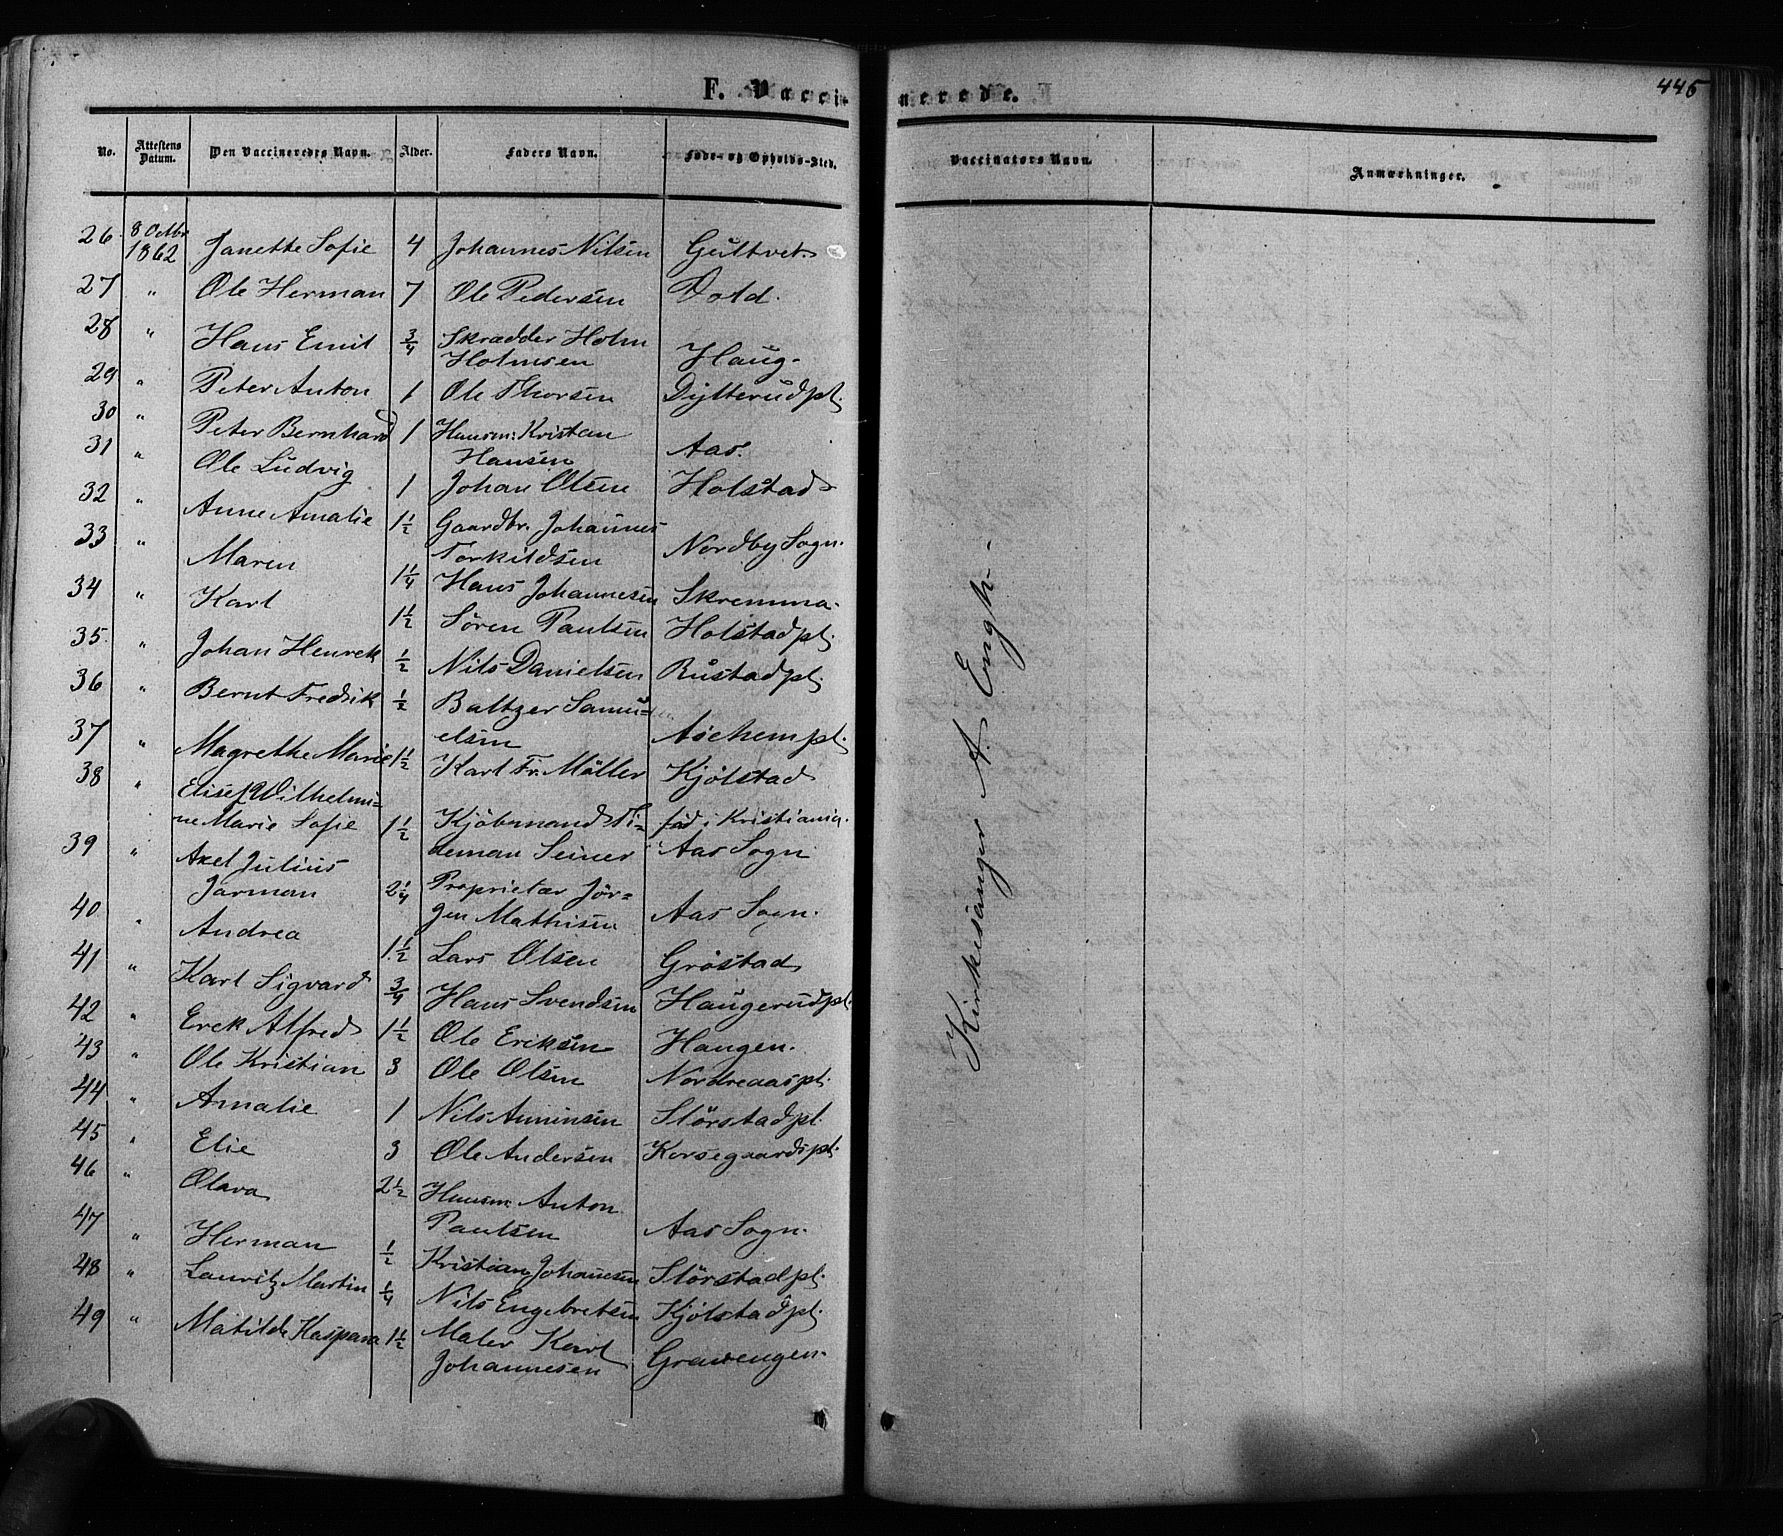 F. Vaccinerede.
445
No. Attestens Datum. Den Vaccineredes Navn. Alder. Faders Navn. Føde- og Opholds-Sted. Vaccinators Navn. Anmærkninger.
26. 8 Octbr 1862 Janette Sofie 4 Johannes Nilsen Gultvet.
27 " Ole Herman 7 Ole Pedersen Dold.
28 " Hans Emil 3/4 Skrædder Holm
Holmsen Haug.
29 " Peter Anton 1 Ole Thorsen Dylterudpl.
30 " Peter Bernhard 1 Husm: Kristian
Hansen Aas.
31 " Ole Ludvig 1 Johan Olsen Holstad
32 " Anne Amalie 1 1/2 Gaardbr. Johannes
Torkildsen Nordby Sogn.
33 " Maren 1 1/4 Hans Johannesen Skremma.
34 " Karl 1 1/2 Sören Paulsen Holstadpl.
35. " Johan Henrek 1/2 Nils Danielsen Rustadpl.
36 " Bernt Fredrik 1/2 Baltzer Samu-
elsen Aschempl.
37 " Magrethe Marie 1 1/2 Karl Fr. Möller Kjölstad
38 " Elise Wilhelmi-
ne Marie Sofie 1 1/2 Kjöbmand Ti- fød i Kristiania.
deman Seiner Aas Sogn
39 " Axel Julius
Jarman 2 1/4 Proprietær Jör-
gen Mathisen Aas Sogn.
40 " Andrea 1 1/2 Lars Olsen Gröstad
41 " Karl Sigvard 3/4 Hans Svendsen Haugerudpl.
42 " Erek Alfred 1 1/2 Ole Eriksen Haugen.
43 " Ole Kristian 3 Ole Olsen Nordreaaspl.
44 " Amalie 1 Nils Amunsen Störstadpl.
45 " Elie 3 Ole Andersen Korsegaardspl.
46 " Olava 2 1/2 Husm. Anton
Paulsen Aas Sogn.
47 " Herman 1/2 Kristian Johansen Störstadpl.
48 " Lauritz Martin 1/4 Nils Engebretsen Kjölstadpl.
49 " Matilde Kaspara 1 1/2 Maler Karl
Johannesen Gravengen.
Kirkesanger A. Engh.